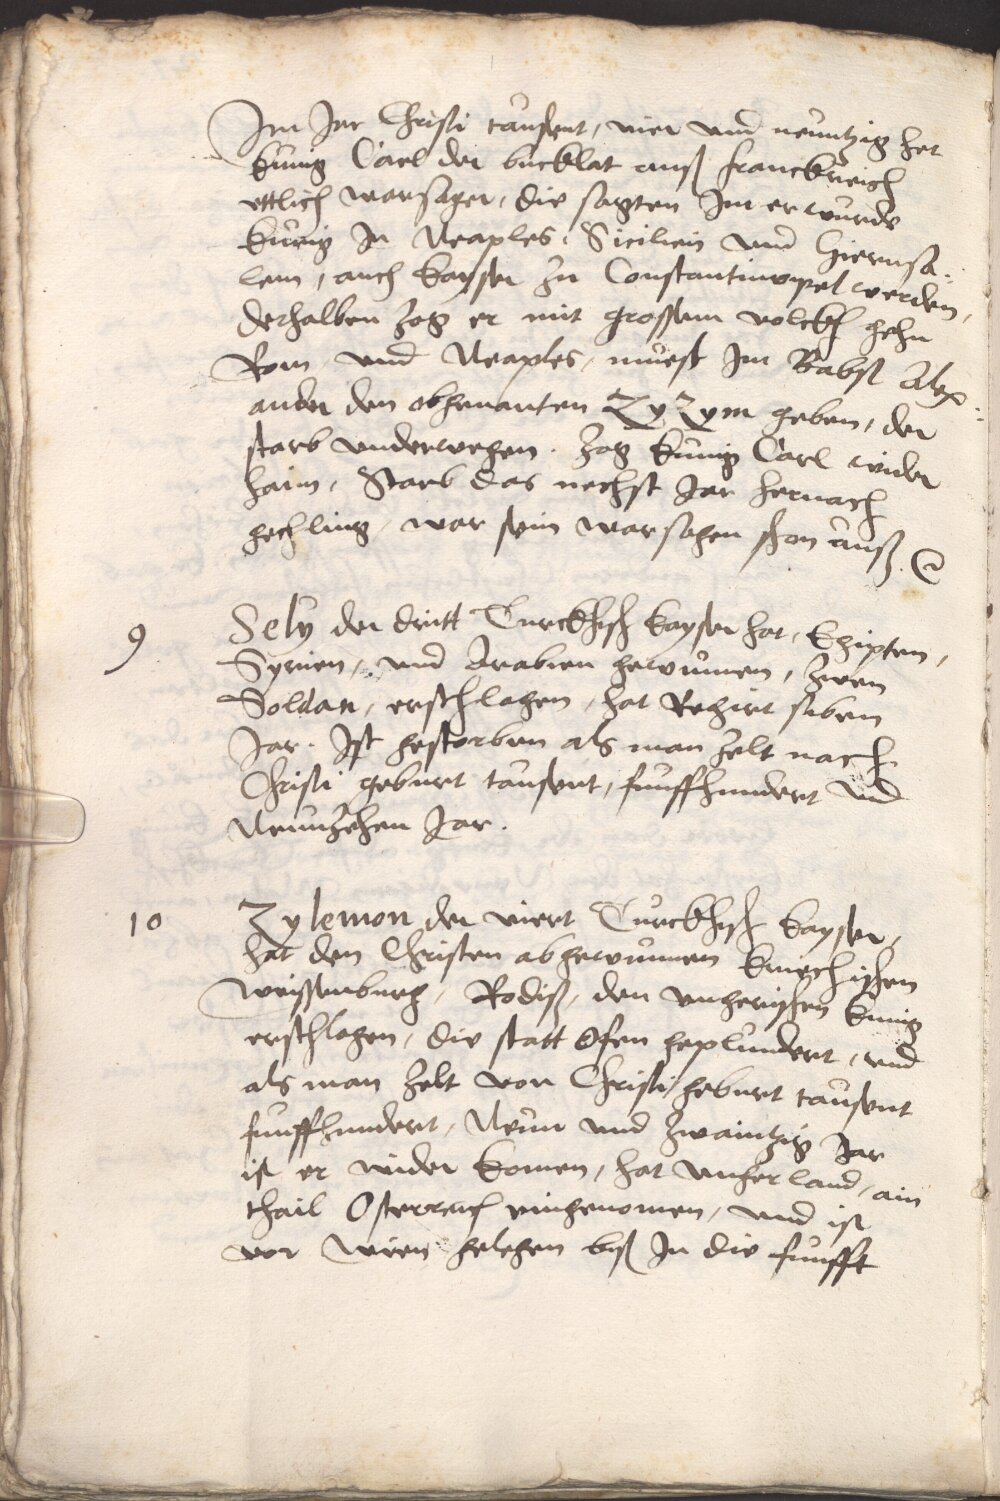 Im Jar Christi tausent, vier und neuntzig het
kunig Carl der bucklat auß franckreich
ettlich warsager, die sagten Im er wurde
kunig In Neaples, Sicilien und Hierusa-
lem, auch kayser zu Constantinopel werden,
derhalben zog er mit grossem volckh gehn
Rom und Neaples, muest Im Babst Alex-
ander den obgenanten ZyZym geben, der
starb underwegen. Zog kunig Carl wider
haim, Starb das nechst Jar hernach
gechling, war sein warsagen schon auß.
9
Sely der dritt Turckhisch kayser hat, Egipten,
Syrien, und Arabien gewunnen, zwen
Soldan, erschlagen, hat Regirt siben
Jar. Ist gestorben als man zelt nach
Christi geburt tausent, funffhundert und
Neunzehen Jar.
10
Zylemon der viert Turckhisch kayser,
hat den Christen abgewunnen kriechischen
weissenburg, Rodiß, den ungerischen kunig
erschlagen, die statt Ofen geplundert, und
als man zelt von Christi geburt tausent
funffhundert, Neun und zwaintzig Jar
ist er wider komen, hat unger land, ain
thail Osterreich eingenomen, und ist
vor wien gelegen biß In die funfft